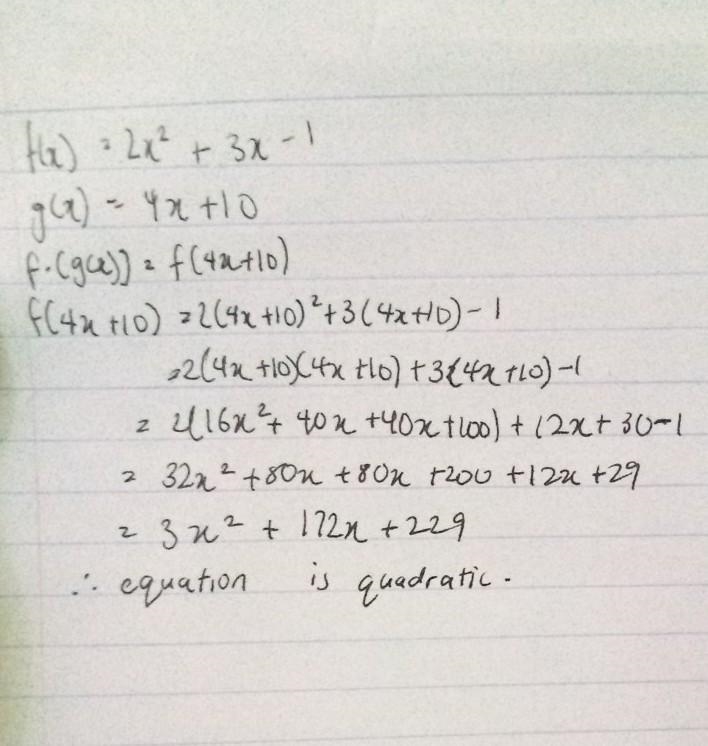 f(x) = 2x² + 3x - 1
g(x) = 4x + 10
f.(g(x)] = f(4x+10)
f(4x+10) = 2(4x+10)²+3(4x+10)-1
=2(4x+10)(4x+10)+3(4x+10)-1
= 2(16x²+ 40x +40x+100)+12x+30-1
= 32x² +80x +80x +200 +12x +29
= 3x² + 172x + 229
∴ equation is quadratic.